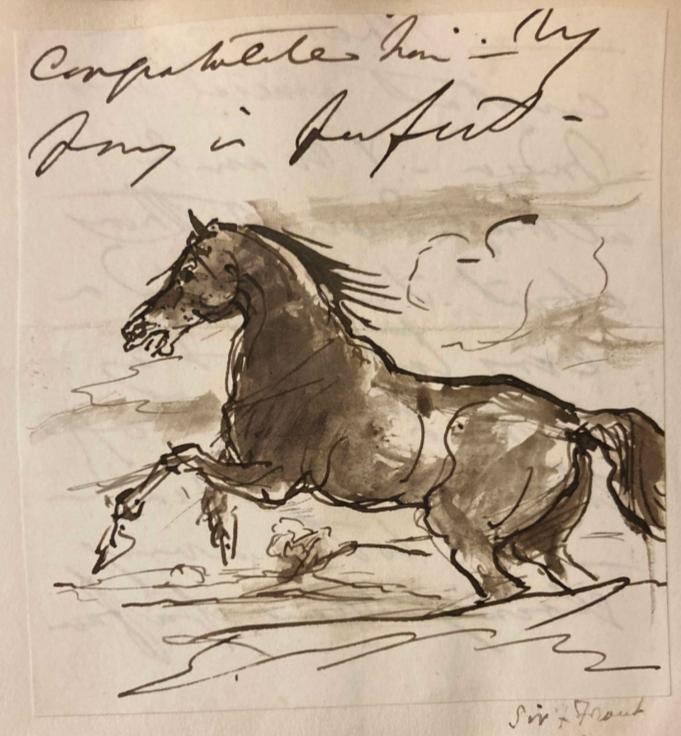 Congratulate him – My
pony is perfect –
Sir